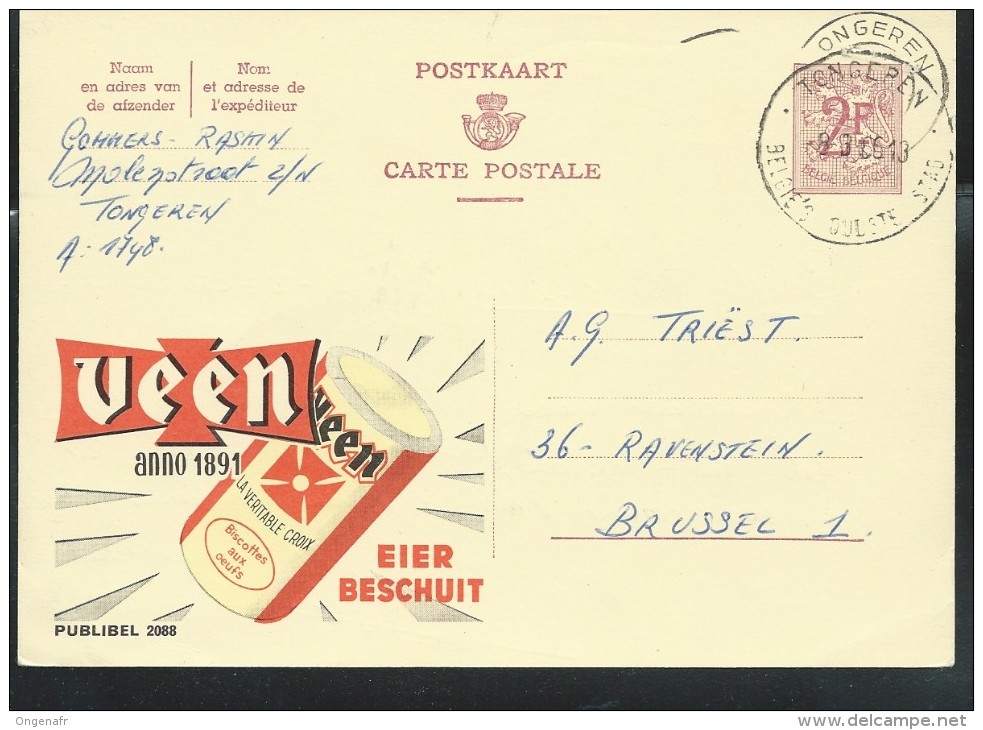 Naam
en adres van
de afzender
Nom
et adresse de
l'expéditeur
POSTKAART
CARTE POSTALE
2F
BELGIE-BELGIQUE
ONGEREN
TONGEREN
BELGIE'S OUDSTE STAD
Gommers - Raskin
Molenstraat z/N
TONGEREN
A: 1748.
A.G. TRIËST.
36 - RAVENSTEIN.
BRUSSEL 1.
veén
anno 1891
veen
LA VERITABLE CROIX
Biscottes
aux
oeufs
EIER
BESCHUIT
PUBLIBEL 2088
Ongenafr
delcampe.net